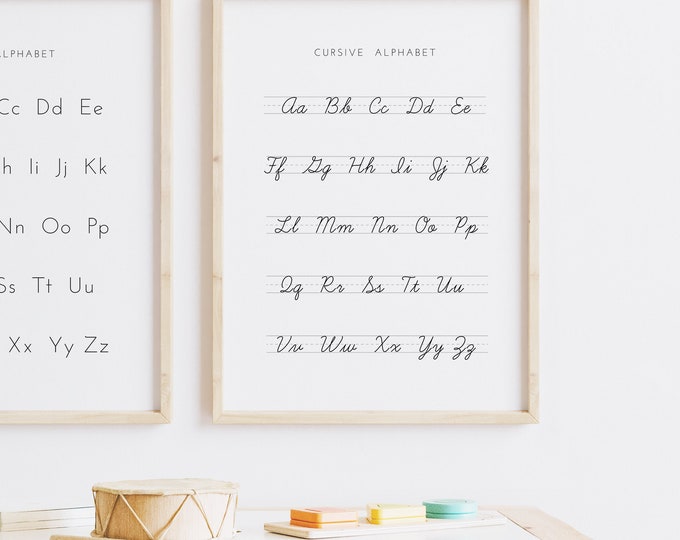 ALPHABET
Cc Dd Ee
h Ii Jj Kk
Nn Oo Pp
Ss Tt Uu
Xx Yy Zz
CURSIVE ALPHABET
Aa Bb Cc Dd Ee
Ff Gg Hh Ii Jj Kk
Ll Mm Nn Oo Pp
Qq Rr Ss Tt Uu
Vv Ww Xx Yy Zz